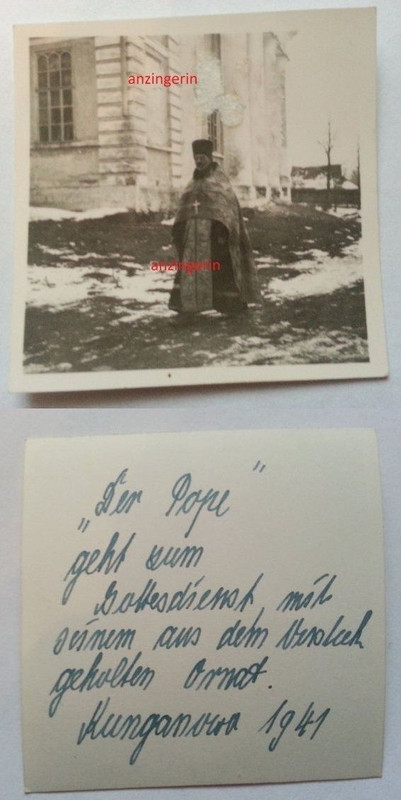 anzingerin
anzingerin
„Der Pope"
geht zum
Gottesdienst mit
seinem aus dem Versteck
geholten Ornat.
Kunganowo 1941